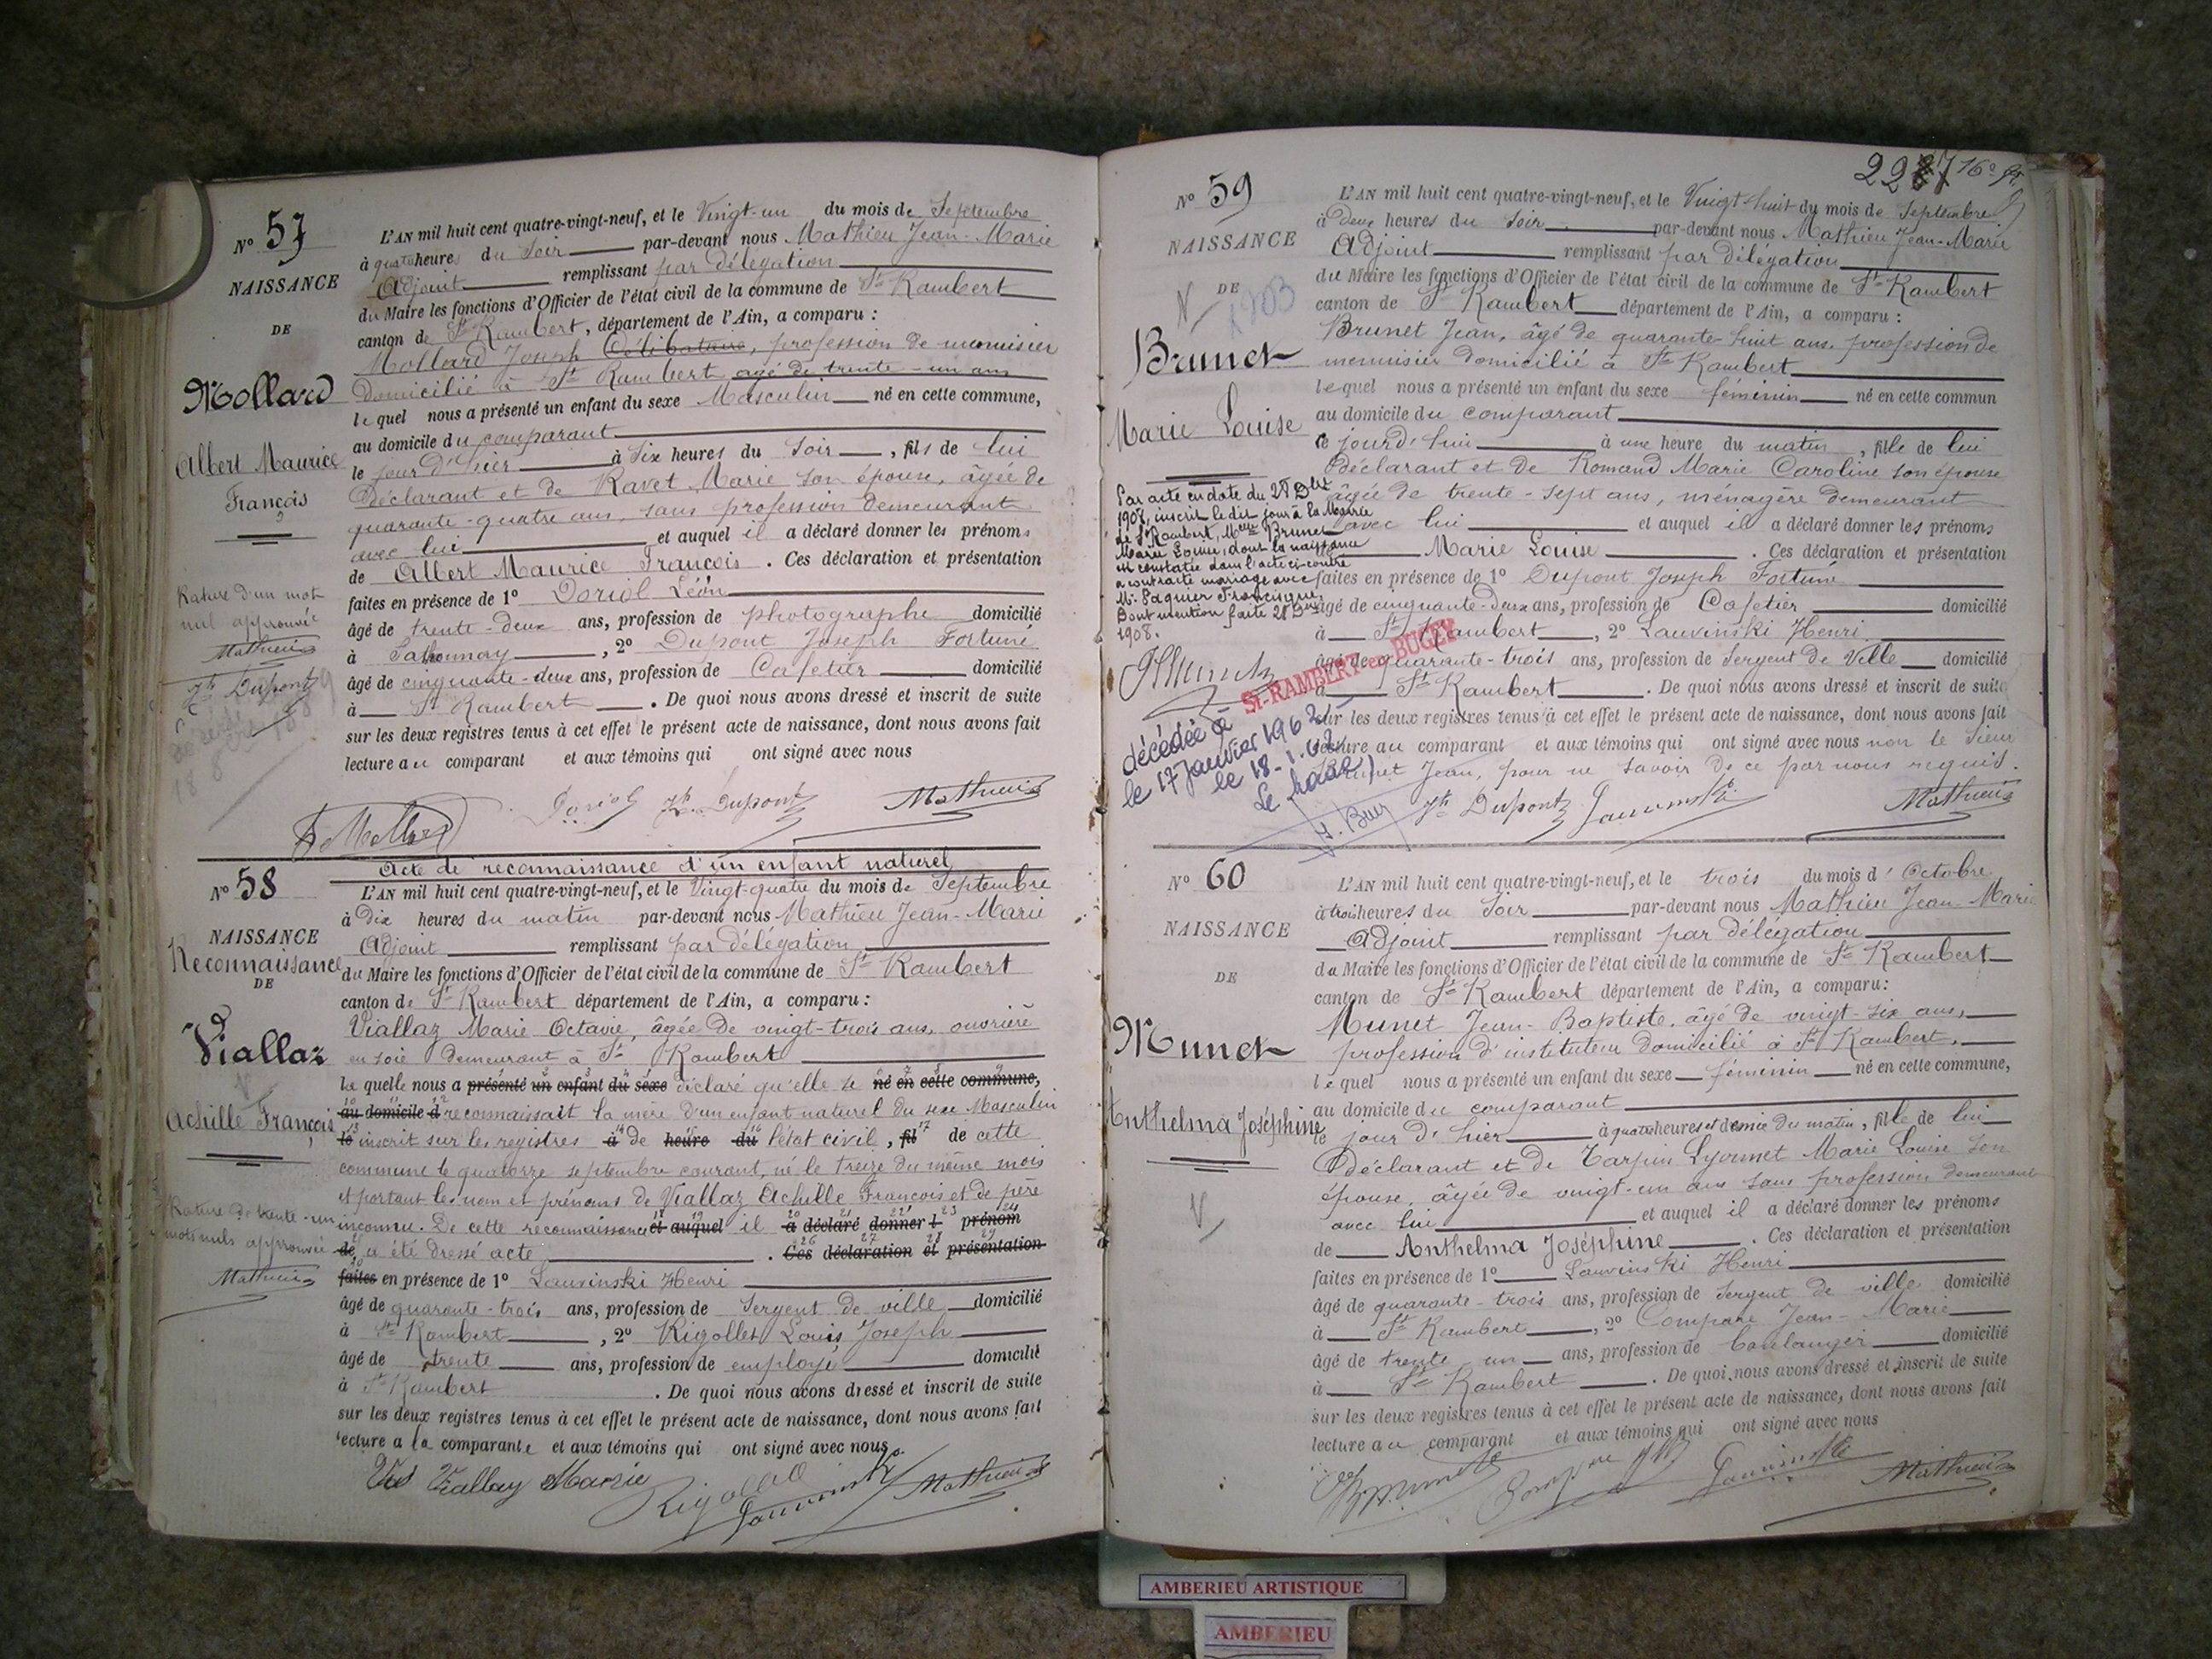 N° 57
NAISSANCE
DE
Mollard
Albert Maurice
François
Rature d'un mot
nul approuvée
Mathieu
Jh Dupont
L'AN mil huit cent quatre-vingt-neuf, et le Vingt-un du mois de Septembre
à quatre heures du Soir par-devant nous Mathieu Jean-Marie
Adjoint remplissant par délégation
du Maire les fonctions d'Officier de l'état civil de la commune de St Rambert
canton de St Rambert, département de l'Ain, a comparu :
Mollard Joseph Célibataire, profession de menuisier
Domicilié à St Rambert agé de trente-un ans
lequel nous a présenté un enfant du sexe Masculin né en cette commune,
au domicile du comparant
le jour d'hier à Six heures du Soir, fils de lui
Déclarant et de Ravet Marie son épouse, âgée de
quarante-quatre ans, sans profession demeurant
avec lui et auquel il a déclaré donner les prénoms
de Albert Maurice François. Ces déclaration et présentation
faites en présence de 1° Doriol Léon
âgé de trente-deux ans, profession de photographe domicilié
à Sathonnay, 2° Dupont Joseph Fortuné
âgé de cinquante-deux ans, profession de Cafetier domicilié
à St Rambert. De quoi nous avons dressé et inscrit de suite
sur les deux registres tenus à cet effet le présent acte de naissance, dont nous avons fait
lecture au comparant et aux témoins qui ont signé avec nous
J. Mollard Doriol Jh Dupont Mathieu
Acte de reconnaissance d'un enfant naturel
N° 58
NAISSANCE
Reconnaissance
DE
Viallaz
Achille François
Rature de trente-un
mots nuls approuvée
Mathieu
L'AN mil huit cent quatre-vingt-neuf, et le Vingt-quatre du mois de Septembre
à Dix heures du matin par-devant nous Mathieu Jean-Marie
Adjoint remplissant par délégation
du Maire les fonctions d'Officier de l'état civil de la commune de St Rambert
canton de St Rambert département de l'Ain, a comparu :
Viallaz Marie Octavie, âgée de vingt-trois ans, ouvrière
en soie demeurant à St Rambert
laquelle nous a présenté un enfant du sexe déclaré qu'elle se né en cette commune,
au domicile d reconnaissait la mère d'un enfant naturel du sexe Masculin
le inscrit sur les registres à de heure du l'état civil, fil de cette
commune le quatorze septembre courant, né le treize du même mois
et portant les nom et prénoms de Viallaz Achille François et de père
inconnu. De cette reconnaissance et auquel il a déclaré donner l prénom
de, a été dressé acte. Ces déclaration et présentation
faites en présence de 1° Lauvinski Henri
âgé de quarante-trois ans, profession de Sergent de ville domicilié
à St Rambert, 2° Rigollet Louis Joseph
âgé de trente ans, profession de employé domicilié
à St Rambert. De quoi nous avons dressé et inscrit de suite
sur les deux registres tenus à cet effet le présent acte de naissance, dont nous avons fait
lecture a la comparante et aux témoins qui ont signé avec nous.
Viallaz Marie Rigollet Lauvinski Mathieu
227 16e
N° 59
NAISSANCE
DE
Brunet
Marie Louise
Par acte en date du 28 Dbre
1908, inscrit le dit jour à la Mairie
de St Rambert, Melle Brunet
Marie Louise, dont la naissance
est constatée dans l'acte ci-contre
a contracté mariage avec
Mr Paquier Francisque.
Dont mention faite 28 Dbre
1908.
ST-RAMBERT-en-BUGEY
décédée à
le 17 janvier 1962
le 18-1-62
Le maire,
L'AN mil huit cent quatre-vingt-neuf, et le Vingt-huit du mois de Septembre
à Deux heures du Soir par-devant nous Mathieu Jean-Marie
Adjoint remplissant par délégation
du Maire les fonctions d'Officier de l'état civil de la commune de St Rambert
canton de St Rambert département de l'Ain, a comparu :
Brunet Jean, âgé de quarante-huit ans, profession de
menuisier domicilié à St Rambert
lequel nous a présenté un enfant du sexe féminin né en cette commun
au domicile du comparant
ce jourd'hui à une heure du matin, fille de lui
Déclarant et de Romand Marie Caroline son épouse
âgée de trente-sept ans, ménagère demeurant
avec lui et auquel il a déclaré donner les prénoms
de Marie Louise. Ces déclaration et présentation
faites en présence de 1° Dupont Joseph Fortuné
âgé de cinquante-deux ans, profession de Cafetier domicilié
à St Rambert, 2° Lauvinski Henri
âgé de quarante-trois ans, profession de Sergent de Ville domicilié
à St Rambert. De quoi nous avons dressé et inscrit de suite
sur les deux registres tenus à cet effet le présent acte de naissance, dont nous avons fait
lecture au comparant et aux témoins qui ont signé avec nous non le Sieur
Brunet Jean, pour ne savoir de ce par nous requis.
Jh Dupont Lauvinski Mathieu
N° 60
NAISSANCE
DE
Munet
Anthelma Joséphine
L'AN mil huit cent quatre-vingt-neuf, et le trois du mois d'Octobre
à trois heures du Soir par-devant nous Mathieu Jean-Marie
Adjoint remplissant par délégation
du Maire les fonctions d'Officier de l'état civil de la commune de St Rambert
canton de St Rambert département de l'Ain, a comparu :
Munet Jean-Baptiste, âgé de vingt-six ans,
profession d'instituteur domicilié à St Rambert,
lequel nous a présenté un enfant du sexe féminin né en cette commune,
au domicile du comparant
le jour d'hier à quatre heures et demie du matin, fille de lui
Déclarant et de Tarpin Lyonnet Marie Louise son
épouse, âgée de vingt-un ans sans profession demeurant
avec lui et auquel il a déclaré donner les prénoms
de Anthelma Joséphine. Ces déclaration et présentation
faites en présence de 1° Lauvinski Henri
âgé de quarante-trois ans, profession de Sergent de ville domicilié
à St Rambert, 2° Compare Jean-Marie
âgé de trente un ans, profession de boulanger domicilié
à St Rambert. De quoi nous avons dressé et inscrit de suite
sur les deux registres tenus à cet effet le présent acte de naissance, dont nous avons fait
lecture au comparant et aux témoins qui ont signé avec nous
Lauvinski Mathieu
AMBERIEU ARTISTIQUE
AMBERIEU